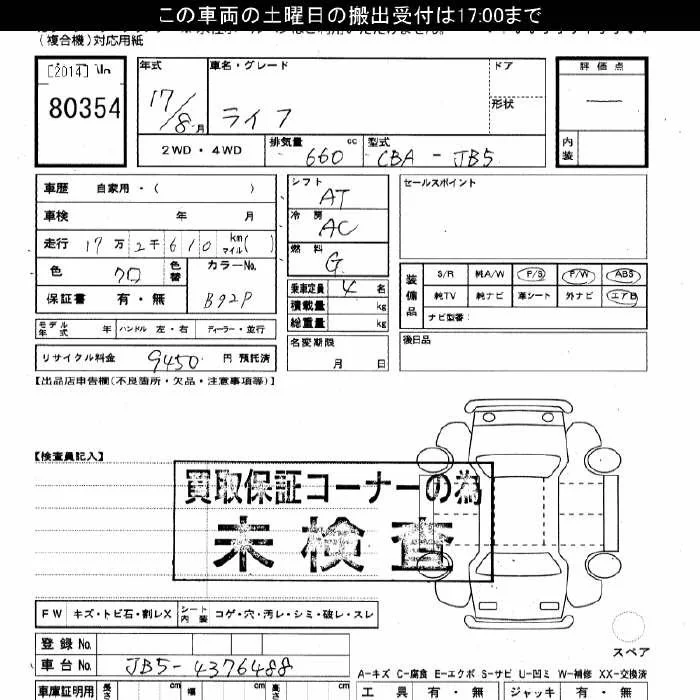 この車両の土曜日の搬出受付は17:00まで
(複合機)対応用紙
[2014]
80354
年式 車名・グレード ドア 評価点
17/8月 ライフ 形状 —
2WD・4WD 排気量 660 cc 型式 CBA - JB5 内装
車歴 自家用・( ) シフト AT セールスポイント
車検 年 月 冷房 AC
走行 17万2千610 km マイル( ) 燃料 G
色 クロ 色替 カラーNo. 装備品 S/R 純A/W P/S P/W ABS
保証書 有・無 B92P 乗車定員 4名 純TV 純ナビ 革シート 外ナビ エアB
積載量 kg ナビ型番:
モデル年式 年 ハンドル 左・右 ディーラー・並行 総重量 kg
リサイクル料金 9450 円 預託済 名変期限 月 日 後日品
【出品店申告欄(不良箇所・欠品・注意事項等)】
【検査員記入】
買取保証コーナーの為
未検査
FW キズ・トビ石・割レX シート内装 コゲ・穴・汚レ・シミ・破レ・スレ
登録No. スペア
車台No. JB5-4376488
A-キズ C-腐食 E-エクボ S-サビ U-凹ミ W-補修 XX-交換済
車庫証明用 長さ cm 幅 cm 高さ cm 工具 有・無 ジャッキ 有・無